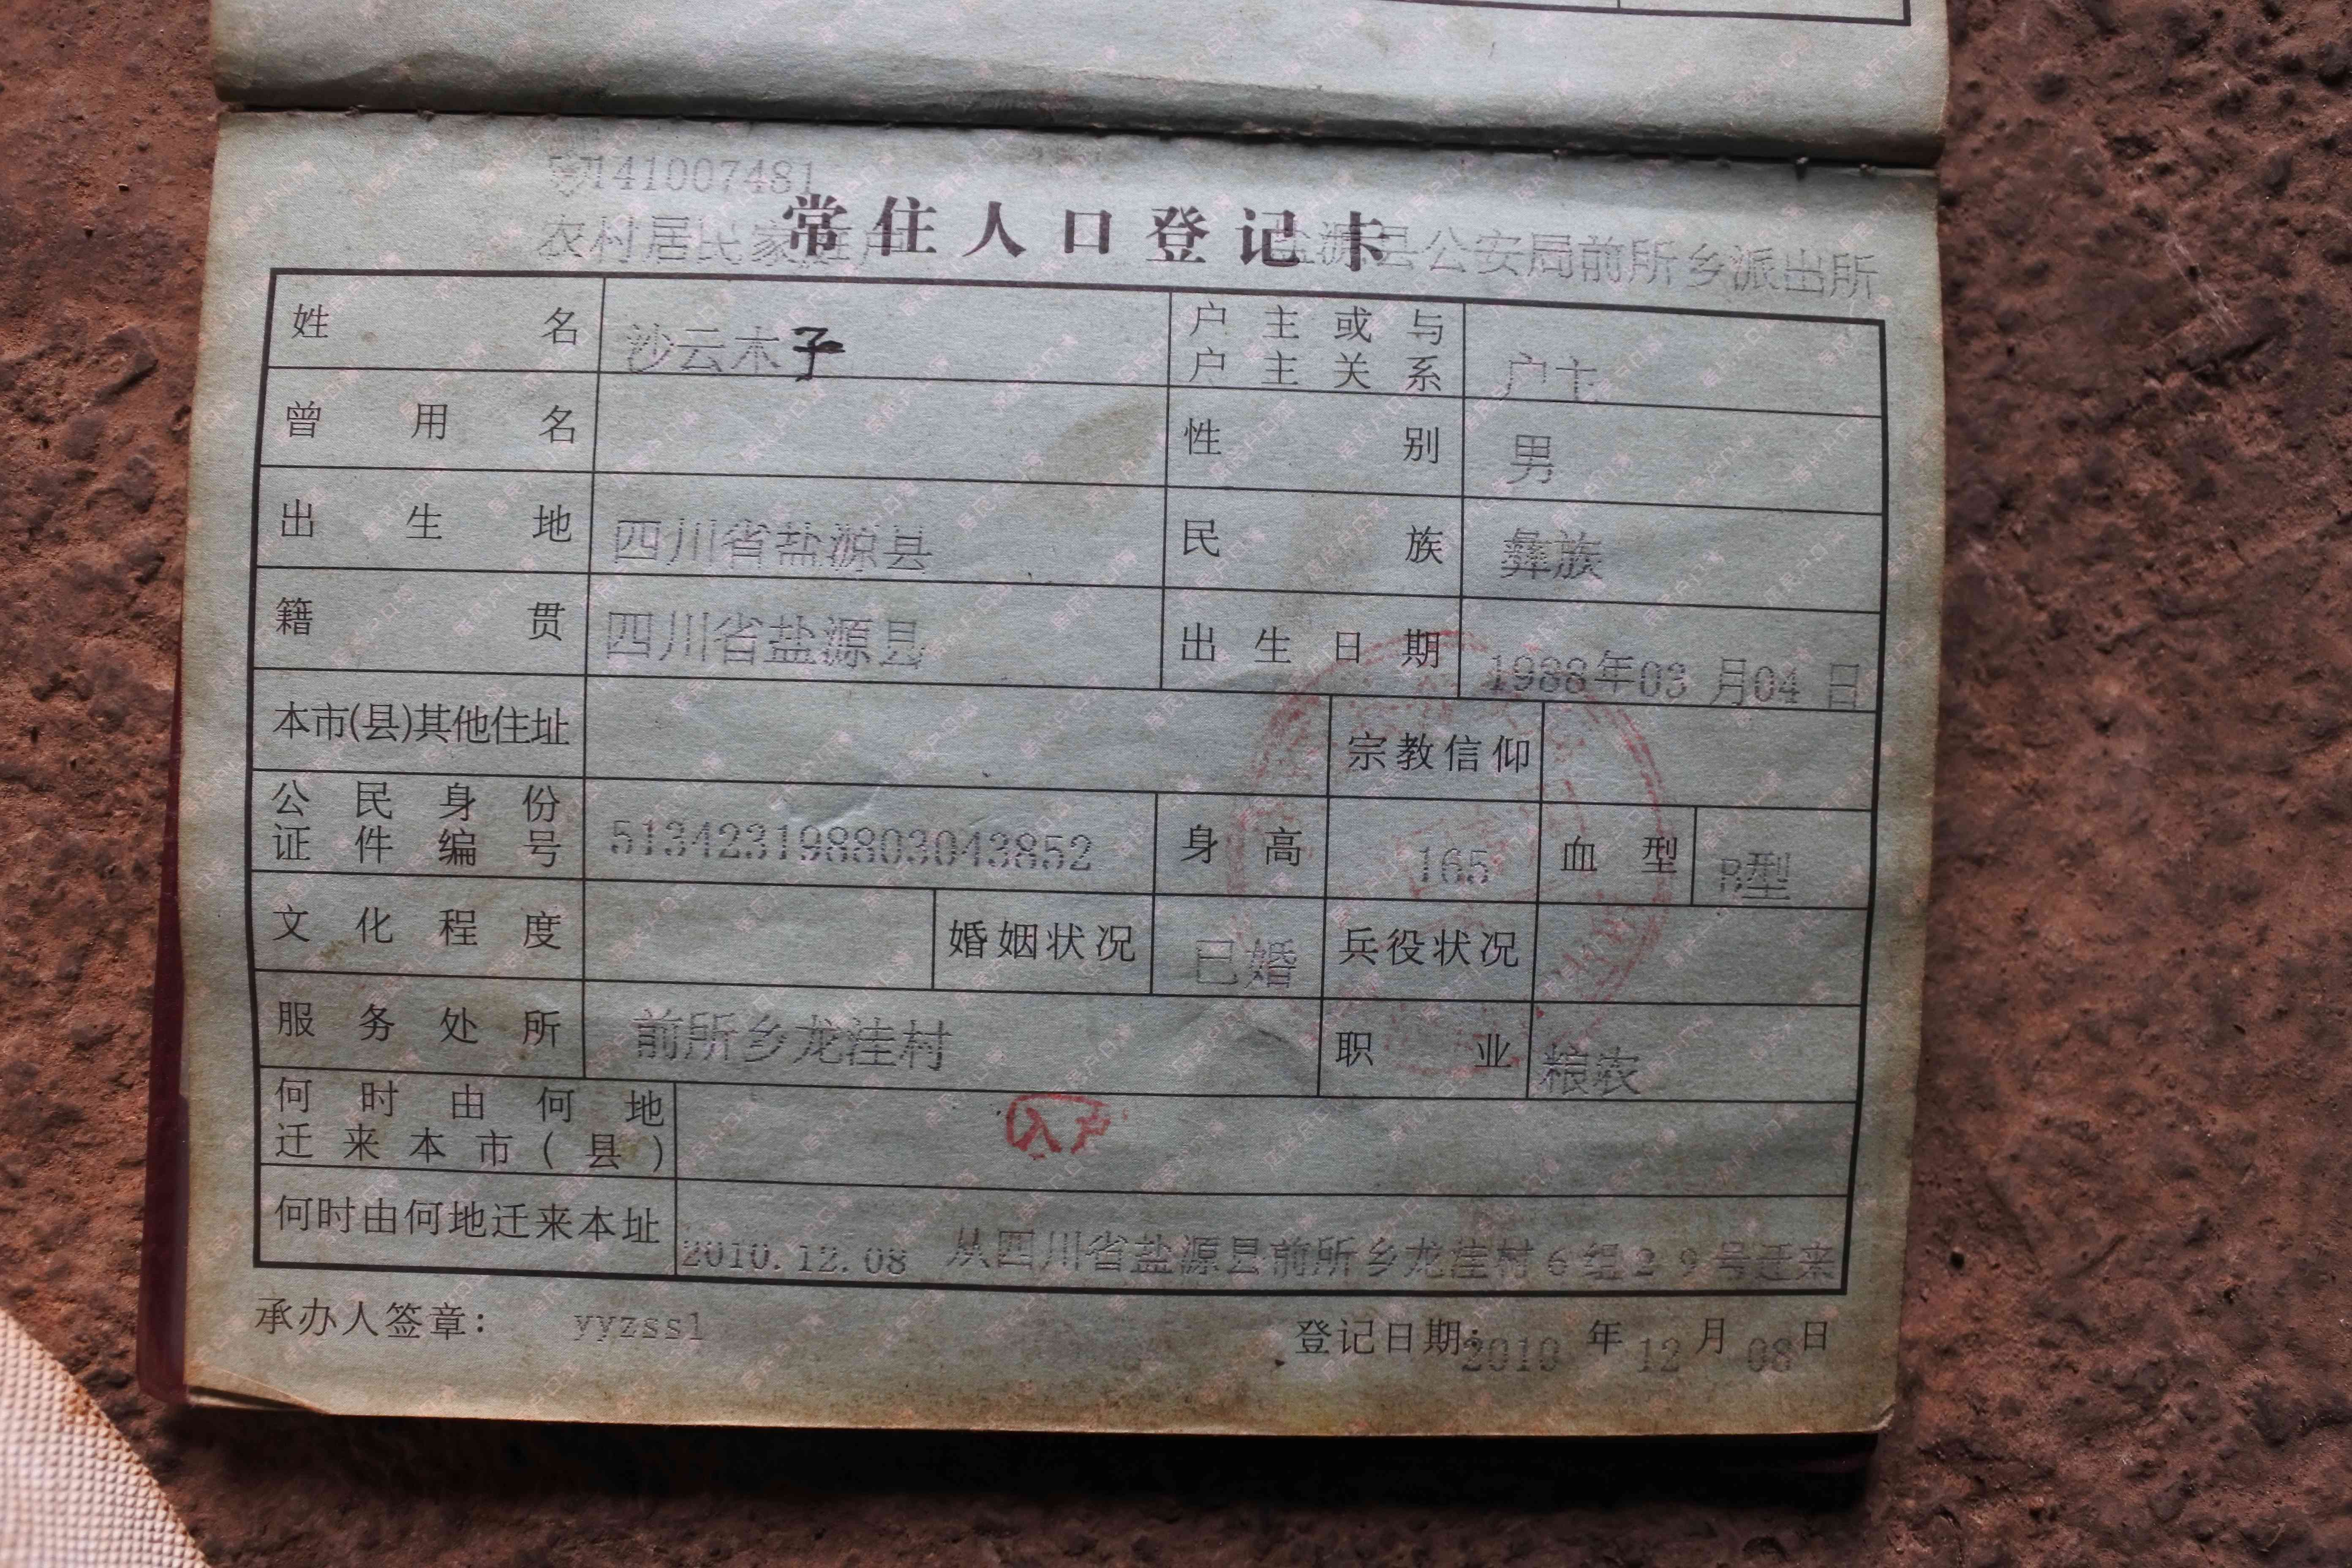 141007481
常住人口登记卡
农村居民家庭户 盐源县公安局前所乡派出所
姓名 沙云木子 户主或与户主关系 户主
曾用名 性别 男
出生地 四川省盐源县 民族 彝族
籍贯 四川省盐源县 出生日期 1988年03月04日
本市(县)其他住址 宗教信仰
公民身份证件编号 513423198803043852 身高 165 血型 B型
文化程度 婚姻状况 已婚 兵役状况
服务处所 前所乡龙洼村 职业 粮农
何时由何地迁来本市(县) 入户
何时由何地迁来本址 2010.12.08 从四川省盐源县前所乡龙洼村6组29号迁来
承办人签章: yyzssl 登记日期:2010年12月08日